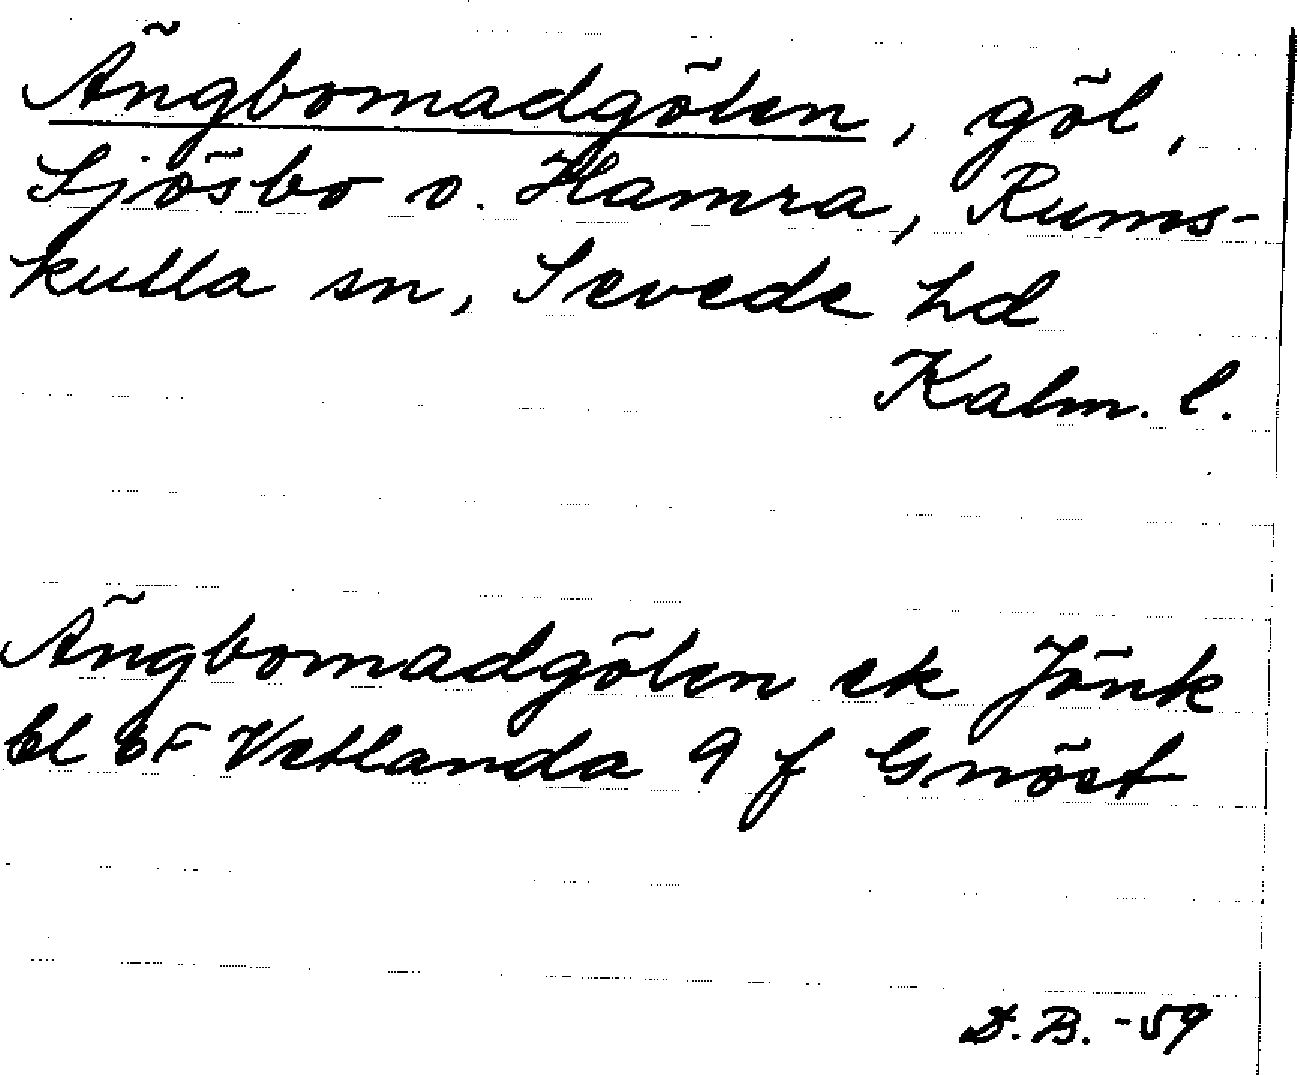 Ängbomadgölen, göl,
Sjösbo o. Hamra, Rums-
kulla sn, Sevede hd
Kalm. l.
Ängbomadgölen ek Jönk
bl 6F Vetlanda 9 f Gnöst
D.B. -59